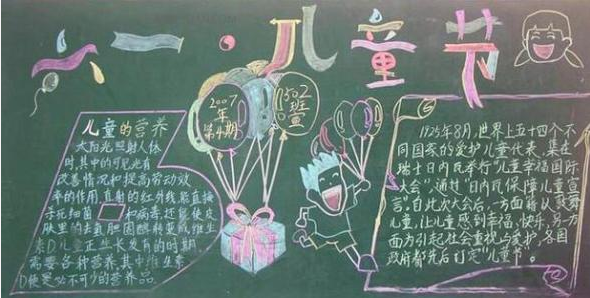 六一·儿童节
2007
年
第4期
302
班
宣
儿童的营养
太阳光照射人体
时,其中的可见光有
改善情况和提高劳动效
率的作用,直射的红外线能直接
杀死细菌和病毒,还能使皮
肤里的去氢胆固醇转变成维生
素D,儿童正生长发育的时期
需要各种营养,其中维生素
D便是必不可少的营养品
1925年8月,世界上五十四个不
同国家的爱护儿童代表,集在
瑞士日内瓦举行"儿童幸福国际
大会",通过"日内瓦保障儿童宣
言",自此次大会后,一方面藉以鼓舞
儿童,让儿童感到幸福、快乐,另一
方面引起社会重视与爱护,各国
政府都先后订定"儿童节"。